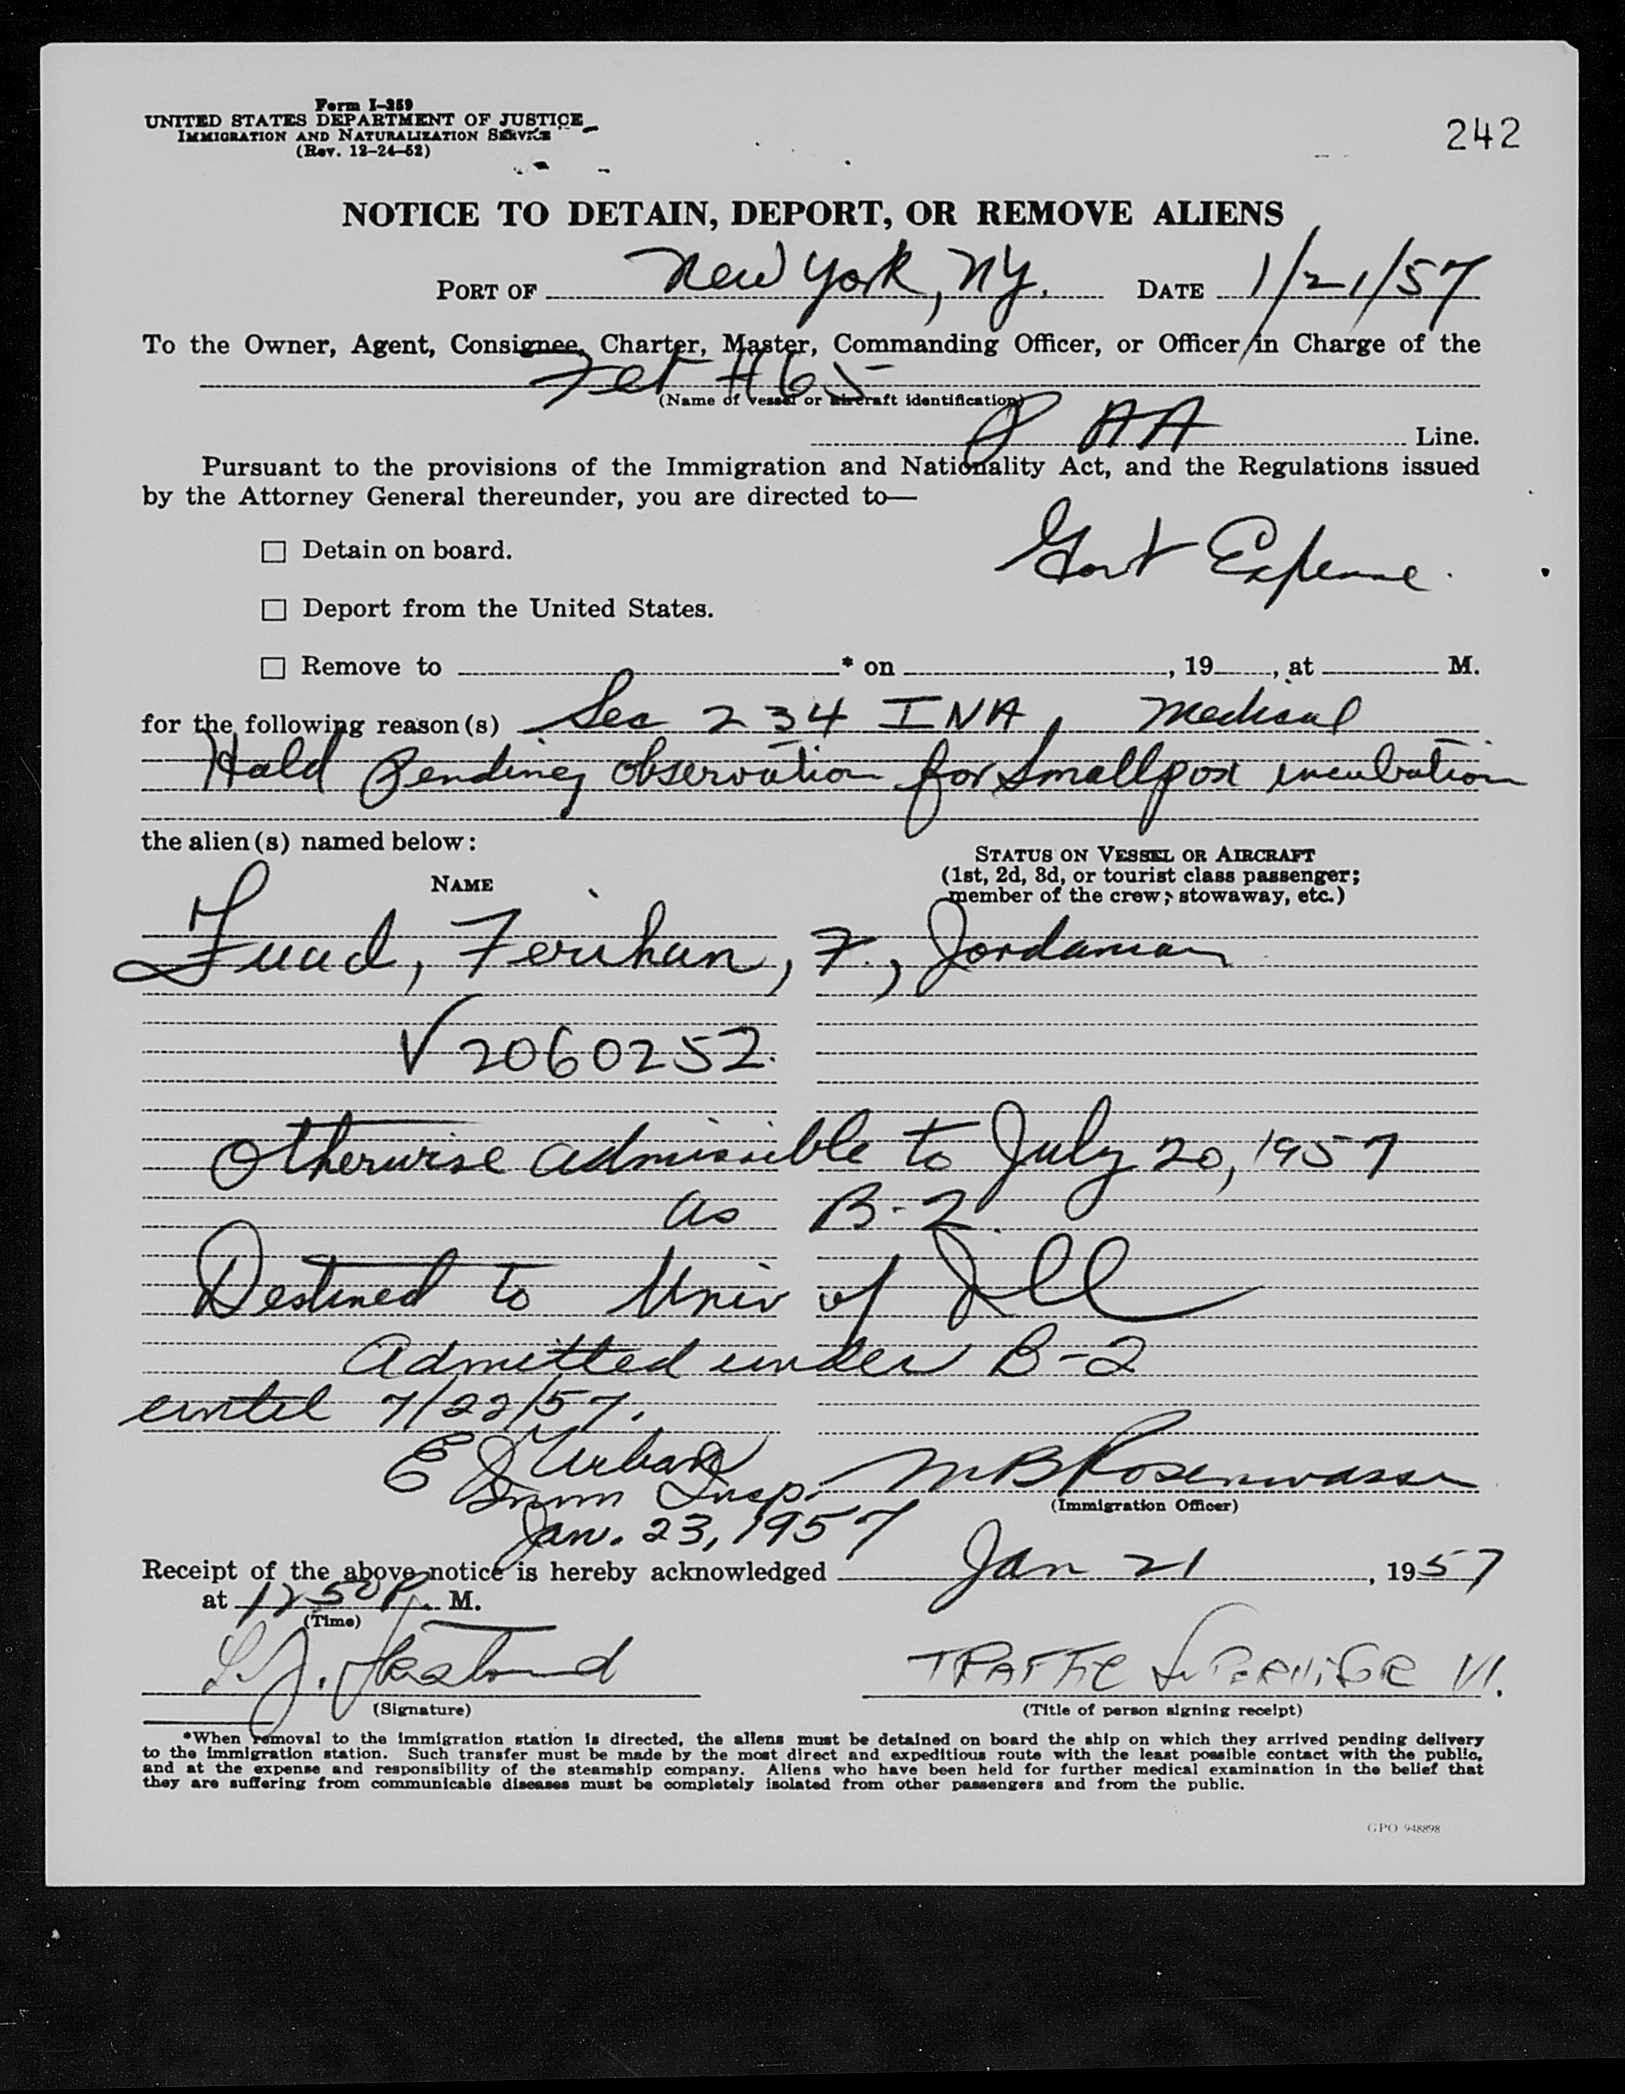 Form I-259
UNITED STATES DEPARTMENT OF JUSTICE
IMMIGRATION AND NATURALIZATION SERVICE
(Rev. 12-24-52)
242
NOTICE TO DETAIN, DEPORT, OR REMOVE ALIENS
PORT OF New York, NY. DATE 1/21/57
To the Owner, Agent, Consignee, Charter, Master, Commanding Officer, or Officer in Charge of the
#65
(Name of vessel or aircraft identification)
PAA Line.
Pursuant to the provisions of the Immigration and Nationality Act, and the Regulations issued
by the Attorney General thereunder, you are directed to—
Govt Expense.
☐ Detain on board.
☐ Deport from the United States.
☐ Remove to * on , 19 , at M.
for the following reason(s) Sec 234 INA, Medical
Hold Pending observation for Smallpox incubation
the alien(s) named below:
NAME
STATUS ON VESSEL OR AIRCRAFT
(1st, 2d, 3d, or tourist class passenger;
member of the crew; stowaway, etc.)
Fuad, Ferihan, F., Jordanian
V 2060252.
Otherwise admissible to July 20, 1957
as B-2.
Destined to Univ of Ill
Admitted under B-2
until 7/22/57.
E J Urban
Imm Insp.
M B Rosenwasser
(Immigration Officer)
Jan. 23, 1957
Receipt of the above notice is hereby acknowledged Jan 21, 1957
at 1250 P. M.
(Time)
TRAFFIC SUPERVISOR
(Signature)
(Title of person signing receipt)
*When removal to the immigration station is directed, the aliens must be detained on board the ship on which they arrived pending delivery
to the immigration station. Such transfer must be made by the most direct and expeditious route with the least possible contact with the public,
and at the expense and responsibility of the steamship company. Aliens who have been held for further medical examination in the belief that
they are suffering from communicable diseases must be completely isolated from other passengers and from the public.
GPO 948898